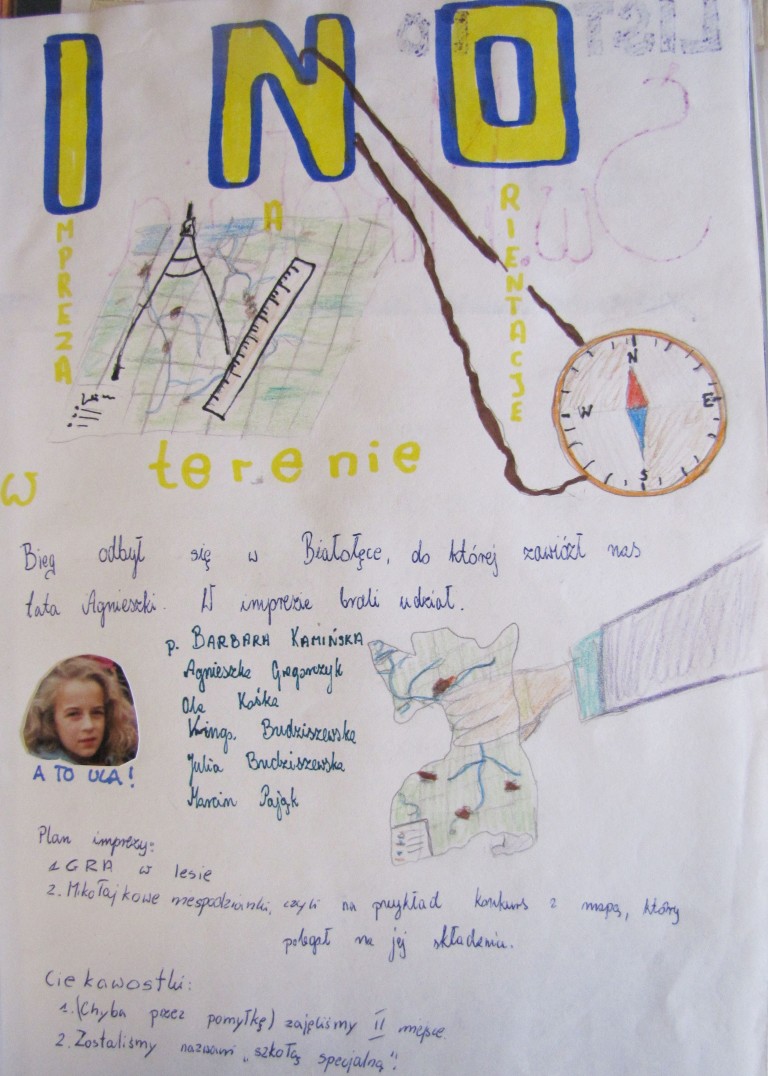 INO
IMPREZA
NA
ORIENTACJE
w terenie
N
W E
S
Bieg odbył się w Białołęce, do której zawiózł nas
tata Agnieszki. W imprezie brali udział.
p. BARBARA KAMIŃSKA
Agnieszka Gregorczyk
Ola Kośka
Kinga Budziszewska
Julia Budziszewska
Marcin Pająk
A TO ULA!
Plan imprezy:
1. GRA w lesie
2. Mikołajkowe niespodzianki, czyli na przykład konkurs z mapą, który
polegał na jej składaniu.
Ciekawostki:
1. (Chyba przez pomyłkę) zajęliśmy II miejsce.
2. Zostaliśmy nazwani „szkołą specjalną"!